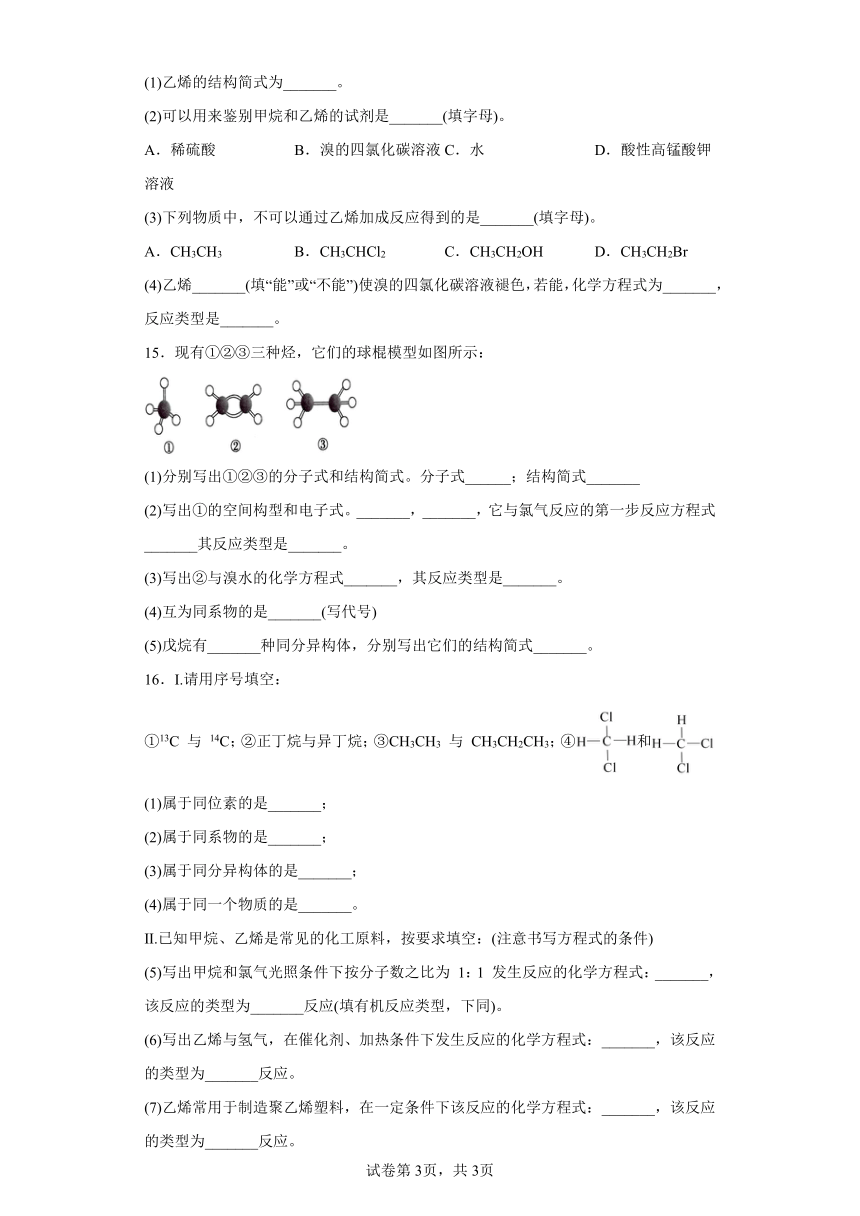 (1)乙烯的结构简式为_______。
(2)可以用来鉴别甲烷和乙烯的试剂是_______(填字母)。
A．稀硫酸 B．溴的四氯化碳溶液C．水 D．酸性高锰酸钾
溶液
(3)下列物质中，不可以通过乙烯加成反应得到的是_______(填字母)。
A．CH3CH3 B．CH3CHCl2 C．CH3CH2OH D．CH3CH2Br
(4)乙烯_______(填“能”或“不能”)使溴的四氯化碳溶液褪色，若能，化学方程式为_______，
反应类型是_______。
15．现有①②③三种烃，它们的球棍模型如图所示：
① ② ③
(1)分别写出①②③的分子式和结构简式。分子式______；结构简式_______
(2)写出①的空间构型和电子式。_______，_______，它与氯气反应的第一步反应方程式
_______其反应类型是_______。
(3)写出②与溴水的化学方程式_______，其反应类型是_______。
(4)互为同系物的是_______(写代号)
(5)戊烷有_______种同分异构体，分别写出它们的结构简式_______。
16．I.请用序号填空：
①13C 与 14C；②正丁烷与异丁烷；③CH3CH3 与 CH3CH2CH3；④
Cl
H—C—H
Cl
和
H
H—C—Cl
Cl
(1)属于同位素的是_______；
(2)属于同系物的是_______；
(3)属于同分异构体的是_______；
(4)属于同一个物质的是_______。
II.已知甲烷、乙烯是常见的化工原料，按要求填空：(注意书写方程式的条件)
(5)写出甲烷和氯气光照条件下按分子数之比为 1：1 发生反应的化学方程式：_______，
该反应的类型为_______反应(填有机反应类型，下同)。
(6)写出乙烯与氢气，在催化剂、加热条件下发生反应的化学方程式：_______，该反应
的类型为_______反应。
(7)乙烯常用于制造聚乙烯塑料，在一定条件下该反应的化学方程式：_______，该反应
的类型为_______反应。
试卷第 3页，共 3页